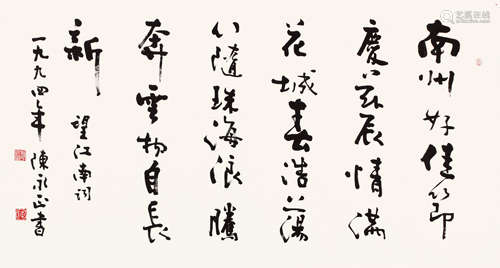 南州好佳節
慶兹辰情滿
花城春浩蕩
心隨珠海浪騰
奔雲物自長
新
望江南詞
一九九四年 陳永正書